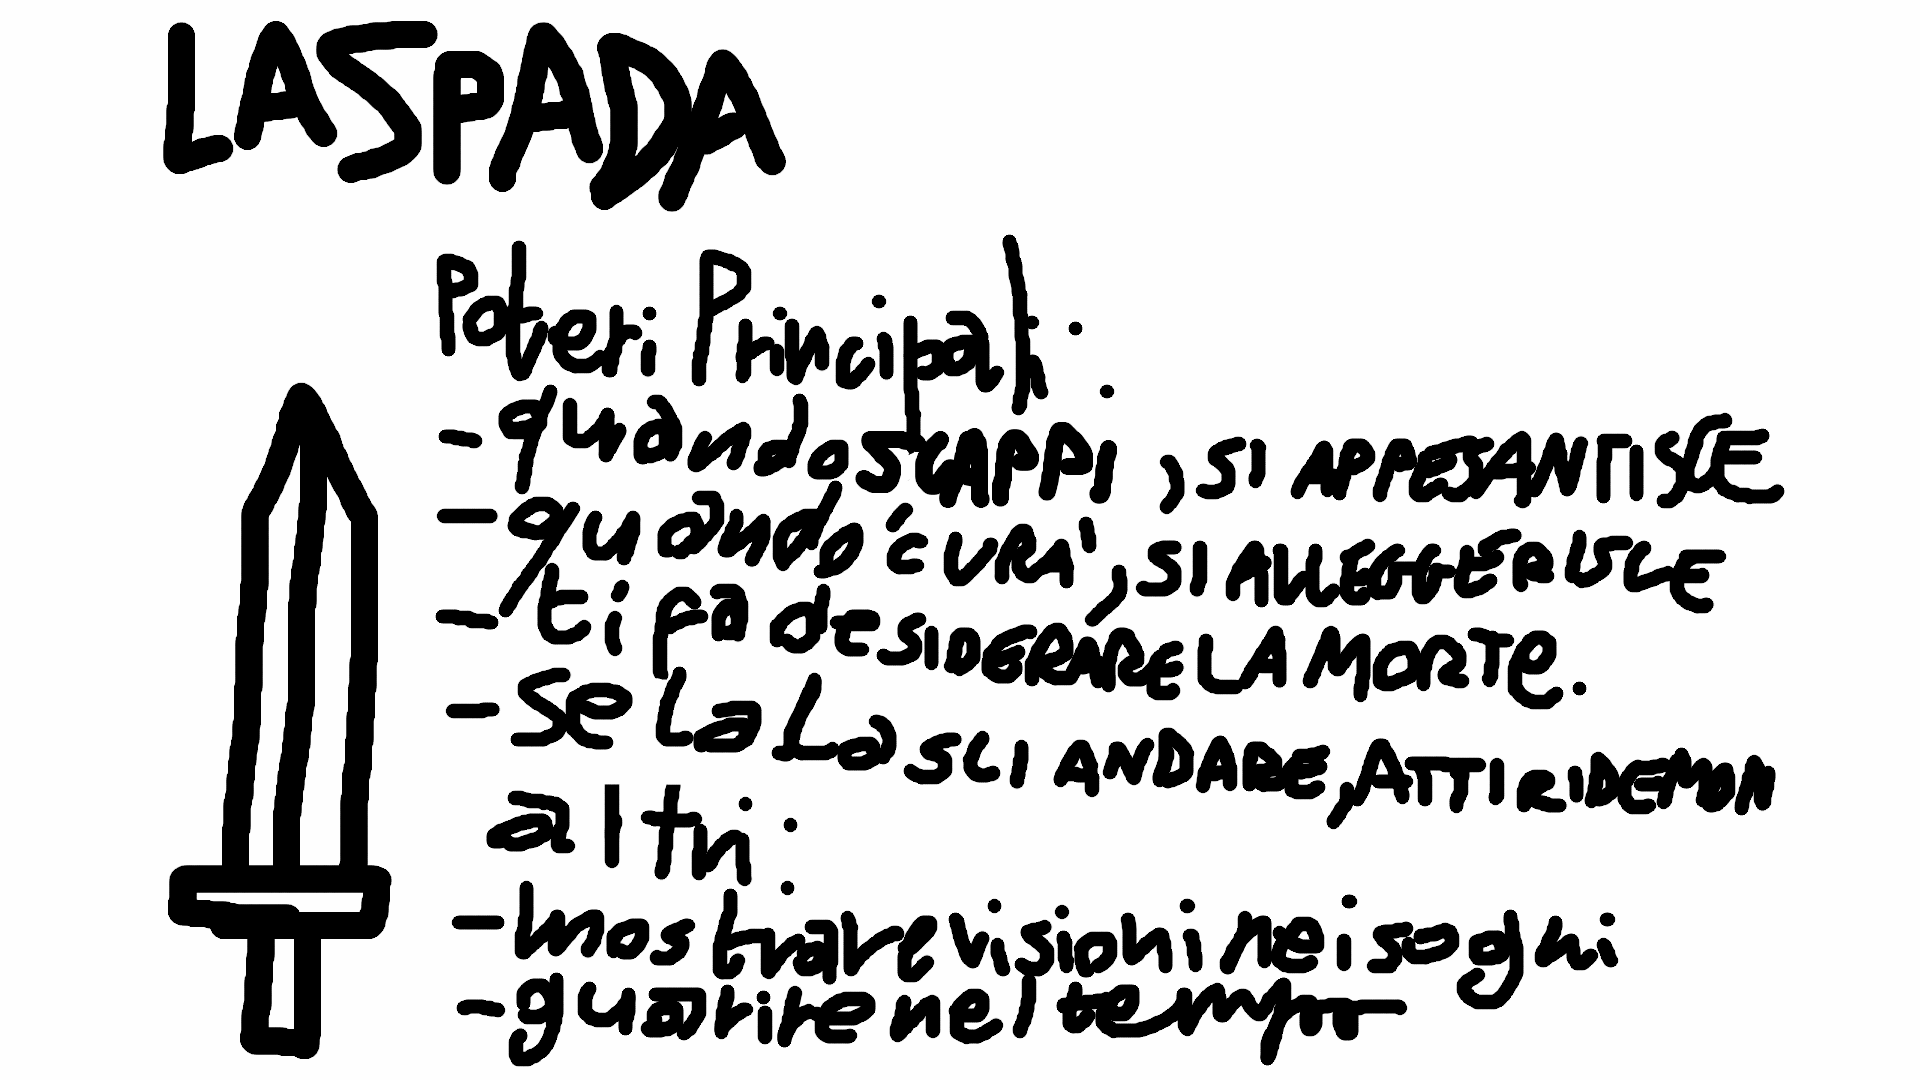 LA SPADA
Poteri Principali:
- quando SCAPPI, SI APPESANTISCE
- quando 'CURA', SI ALLEGGERISCE
- ti fa deSIDERARE LA MORTE.
- Se La LaSCI ANDARE, ATTIRI DEMON
altri:
- mostrare visioni nei sogni
- guarire nel tempo